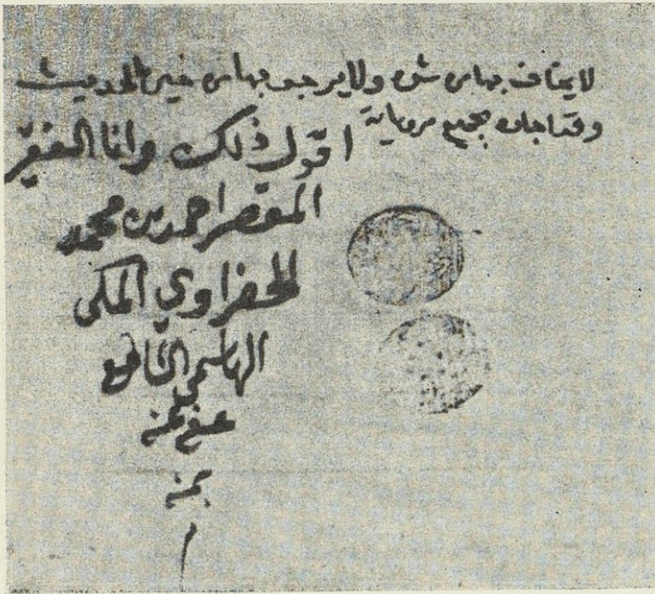 لا يخاف بها من شر ولا يرجو بها من خير الحديث
بجميع مروياته اقول ذلك وانا الفقير
المقصر احمد بن محمد
الحضراوي المكي
الهاشمي الشافعي
عفي عنه
بمنه